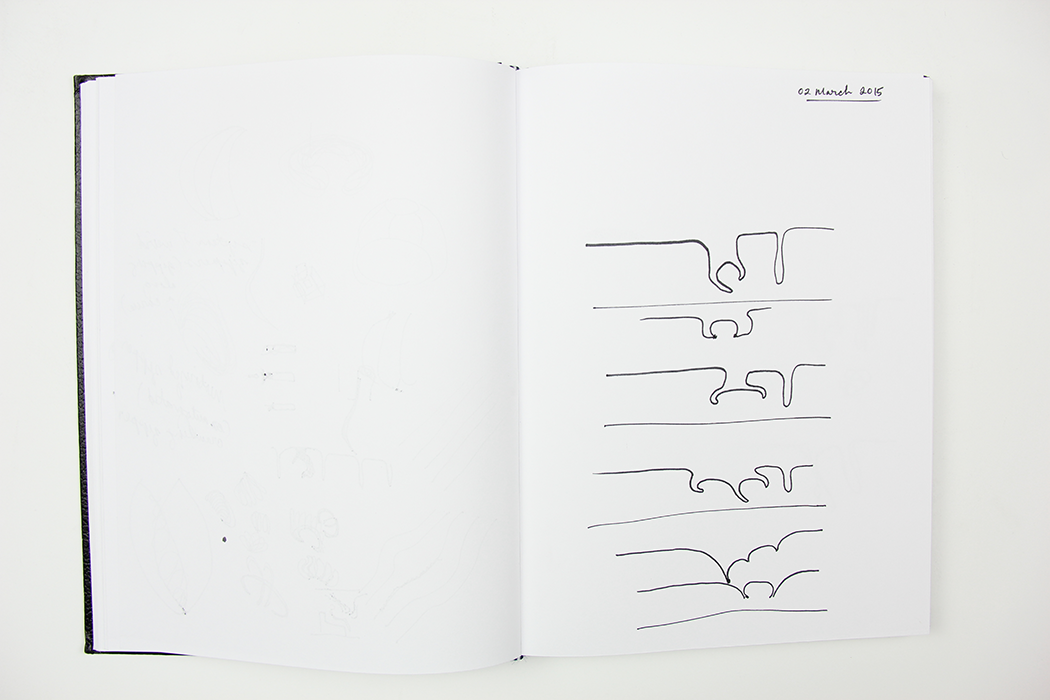 02 March 2015